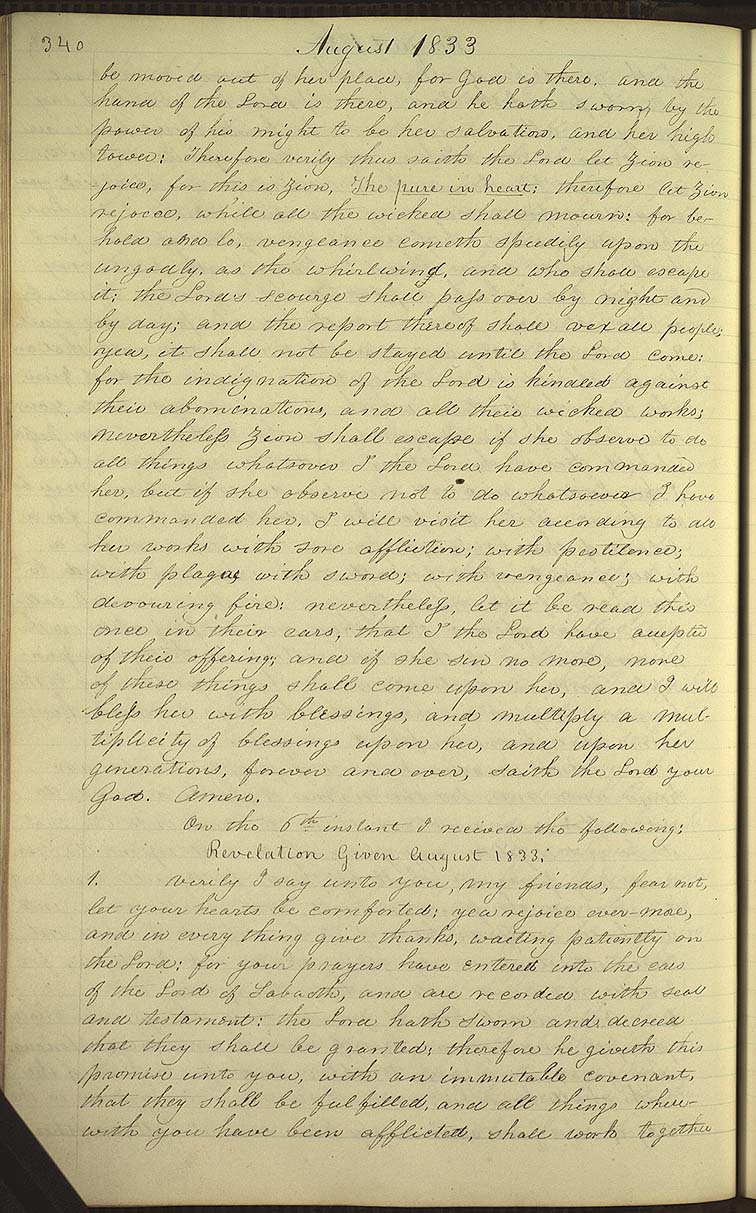 340
August 1833
be moved out of her place, for God is there. and the
hand of the Lord is there, and he hath sworn, by the
power of his might to be her salvation, and her high
tower: Therefore verily thus saith the Lord let Zion re-
joice, for this is Zion, The pure in heart: therefore let Zion
rejoice, while all the wicked shall mourn: for be-
hold and lo, vengeance cometh speedily upon the
ungodly, as the whirlwind, and who shall escape
it; the Lord's scourge shall pass over by night and
by day; and the report thereof shall vex all people;
yea, it shall not be stayed until the Lord come:
for the indignation of the Lord is kindled against
their abominations, and all their wicked works;
nevertheless Zion shall escape if she observe to do
all things whatsover I the Lord have commanded
her, but if she observe not to do whatsoever I have
commanded her, I will visit her according to all
her works with sore affliction; with pestilence;
with plague, with sword; with vengeance; with
devouring fire: nevertheless, let it be read this
once in their ears, that I the Lord have accepted
of their offering; and if she sin no more, none
of these things shall come upon her, and I will
bless her with blessings, and multiply a mul-
tiplicity of blessings upon her, and upon her
generations, forever and ever, saith the Lord your
God. Amen.
On the 6th instant I received the following:
Revelation Given August 1833.
1. Verily I say unto you, my friends, fear not,
let your hearts be comforted; yea rejoice ever-more,
and in every thing give thanks, waiting patiently on
the Lord; for your prayers have entered into the ears
of the Lord of Sabaoth, and are recorded with seal
and testament: the Lord hath sworn and decreed
that they shall be granted; therefore he giveth this
promise unto you, with an immutable covenant,
that they shall be fulfilled, and all things where-
with you have been afflicted, shall work together